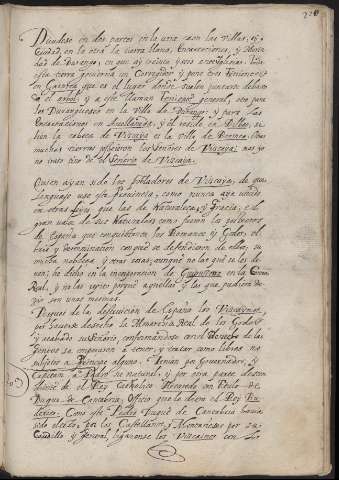 Diuidese en dos partes en la una caen las Villas, y
Ciudad, en la otra la tierra llana, Encartaciones, y Merin
dad de Durango, en que ay veinte y seis
esta tierra gouierna un Corregidor y pone tres Tenientes
en Garnica que es el lugar donde suelen juntarse debaxo
de el arbol y a este llaman Teniente general, otro para
los Durangueses en la Villa de Durango: y para las
Encartaciones en Avellaneda, y el reside en Bilbao, se
bien la cabeça de Vizcaya es la Villa de Bermeo. Otras
muchas tierras posseieron los Señores de Vizcaya; mas yo
no trato sino de el Señorio de Vizcaya.
Quien ayan sido los pobladores de Vizcaya, de que
lenguage uso esta Prouincia, como nunca aya usado
en otras leyes, que las de Naturaleza, y Gracia: el
gran valor de sus Naturales como fueron los postreros
de España que conquistaron los Romanos y Godos, el
brio y determinacion con que se defendieron de ellos, su
mucha nobleza y otras cosas, aunque no las que se les de
uen; he dicho en la
Real, y no las repito porque aquellas y las que pudiera de
zir son unas mesmas.
Despues de la destruicion de España los Vizcaynos
por hauerse desecho la Monarchia Real de los Godos
y acabado su Señorio, conformandose con el derecho de las
gentes se empeçaron a tener, y tratar como libres no
sujetos a Principe alguno. Tenian por Gouernador, y
Capitan a Pedro su natural, y por otra parte decen
diente de el Rey Catholico Recaredo con titulo de
Duque de Cantabria; Officio que le dieron el Rey
Como este Pedro Duque de Cantabria hauia
sido electo, por los Castellanos y Montañeses por su
Caudillo y General, ligaronse los Vizcainos con los